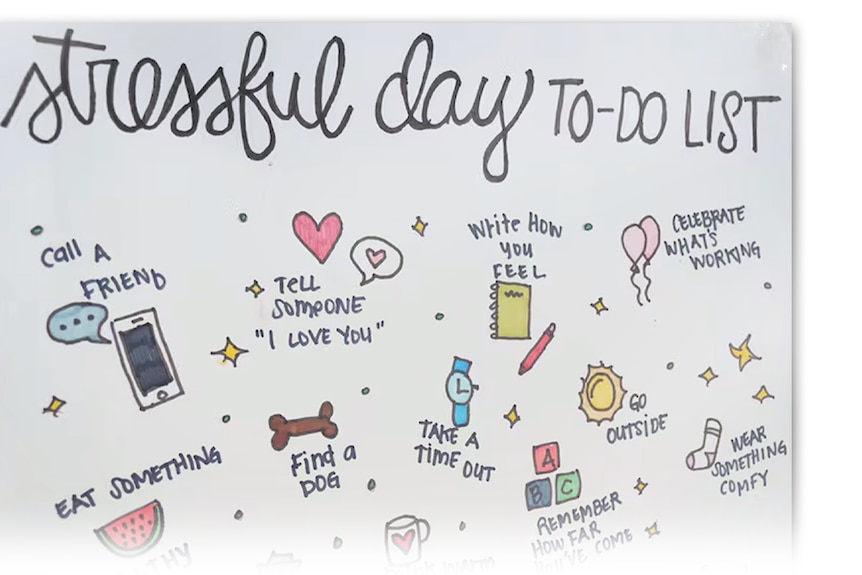 stressful day TO-DO LIST
Call A
FRIEND
TELL
SOMEONE
"I LOVE YOU"
Write How
you
FEEL
CELEBRATE
WHAT'S
WORKING
Find a
DOG
TAKE A
TIME OUT
GO
OUTSIDE
WEAR
SOMETHING
COMFY
EAT SOMETHING
A
B C
REMEMBER
HOW FAR
YOU'VE COME